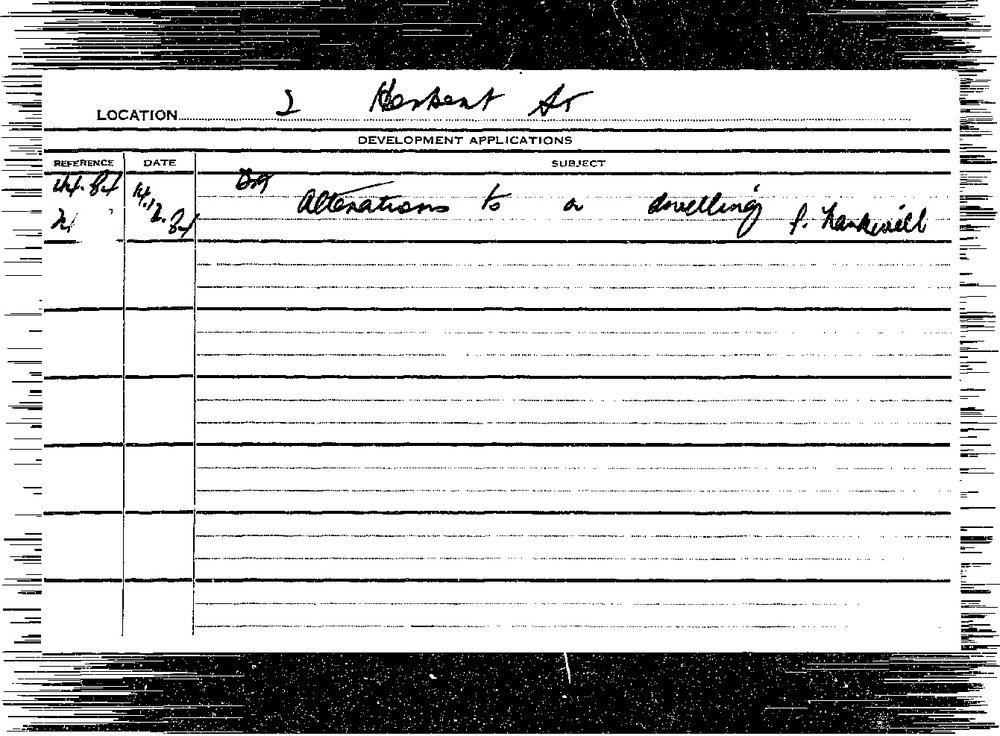 LOCATION 2 Herbert St
DEVELOPMENT APPLICATIONS
REFERENCE DATE SUBJECT
44.84 14.12.84 DA Alterations to a dwelling